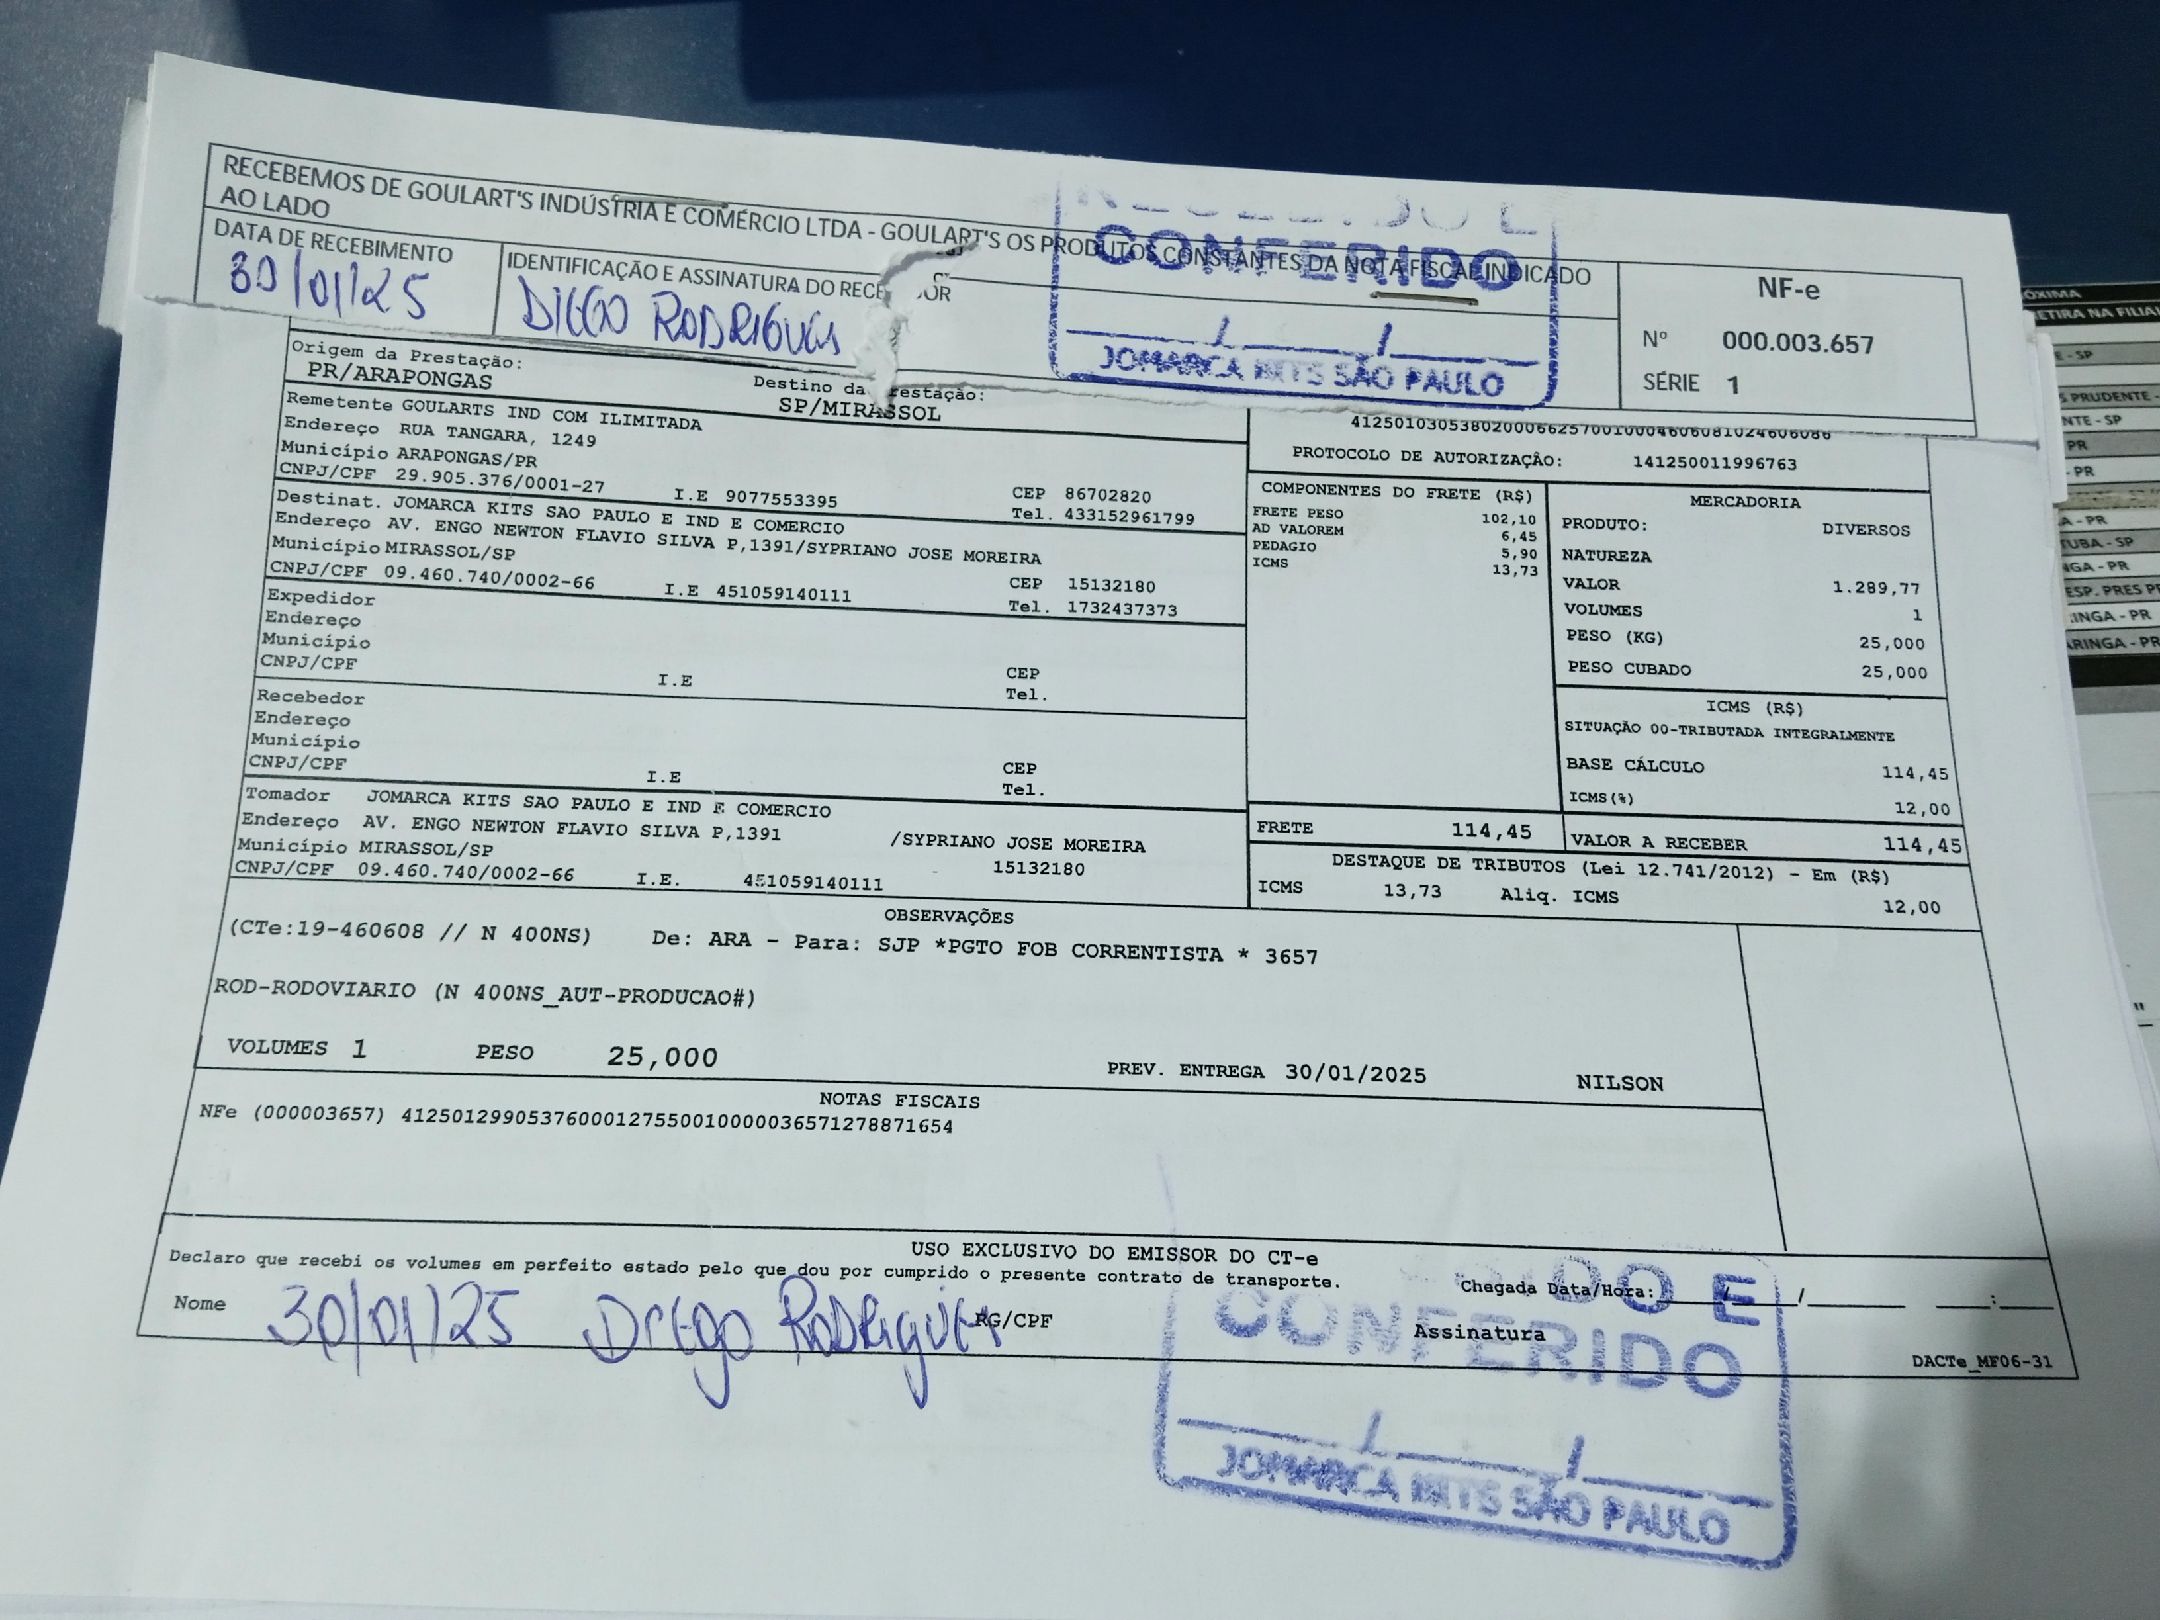 RECEBEMOS DE GOULART'S INDÚSTRIA E COMÉRCIO LTDA - GOULART'S OS PRODUTOS CONSTANTES DA NOTA FISCAL INDICADO
AO LADO
DATA DE RECEBIMENTO
30/01/25
IDENTIFICAÇÃO E ASSINATURA DO RECEBEDOR
DIEGO RODRIGUES
RECEBIDO E
CONFERIDO
JOMARCA KITS SÃO PAULO
NF-e
Nº 000.003.657
SÉRIE 1
Origem da Prestação:
PR/ARAPONGAS
Destino da Prestação:
SP/MIRASSOL
Remetente GOULARTS IND COM ILIMITADA
Endereço RUA TANGARA, 1249
Município ARAPONGAS/PR
CNPJ/CPF 29.905.376/0001-27 I.E 9077553395
CEP 86702820
Tel. 433152961799
Destinat. JOMARCA KITS SAO PAULO E IND E COMERCIO
Endereço AV. ENGO NEWTON FLAVIO SILVA P,1391/SYPRIANO JOSE MOREIRA
Município MIRASSOL/SP
CNPJ/CPF 09.460.740/0002-66 I.E 451059140111
CEP 15132180
Tel. 1732437373
Expedidor
Endereço
Município
CNPJ/CPF I.E
CEP
Tel.
Recebedor
Endereço
Município
CNPJ/CPF I.E
CEP
Tel.
Tomador JOMARCA KITS SAO PAULO E IND E COMERCIO
Endereço AV. ENGO NEWTON FLAVIO SILVA P,1391 /SYPRIANO JOSE MOREIRA
Município MIRASSOL/SP 15132180
CNPJ/CPF 09.460.740/0002-66 I.E. 451059140111
41250103053802000662570010004606081024606086
PROTOCOLO DE AUTORIZAÇÂO: 141250011996763
COMPONENTES DO FRETE (R$)
FRETE PESO 102,10
AD VALOREM 6,45
PEDAGIO 5,90
ICMS 13,73
MERCADORIA
PRODUTO: DIVERSOS
NATUREZA
VALOR 1.289,77
VOLUMES 1
PESO (KG) 25,000
PESO CUBADO 25,000
ICMS (R$)
SITUAÇÃO 00-TRIBUTADA INTEGRALMENTE
BASE CÁLCULO 114,45
ICMS(%) 12,00
FRETE 114,45
VALOR A RECEBER 114,45
DESTAQUE DE TRIBUTOS (Lei 12.741/2012) - Em (R$)
ICMS 13,73 Aliq. ICMS 12,00
OBSERVAÇÕES
(CTe:19-460608 // N 400NS) De: ARA - Para: SJP *PGTO FOB CORRENTISTA * 3657
ROD-RODOVIARIO (N 400NS_AUT-PRODUCAO#)
VOLUMES 1 PESO 25,000 PREV. ENTREGA 30/01/2025 NILSON
NOTAS FISCAIS
NFe (000003657) 41250129905376000127550010000036571278871654
USO EXCLUSIVO DO EMISSOR DO CT-e
Declaro que recebi os volumes em perfeito estado pelo que dou por cumprido o presente contrato de transporte.
Chegada Data/Hora: / / :
Nome 30/01/25 Diego Rodrigues RG/CPF Assinatura
DACTe_MF06-31
IDO E
CONFERIDO
JOMARCA KITS SÃO PAULO
ÓXIMA
RETIRA NA FILIAL
E - SP
S PRUDENTE -
NTE - SP
PR
- PR
A - PR
TUBA - SP
NGA - PR
ESP. PRES PR
INGA - PR
ARINGA - PR